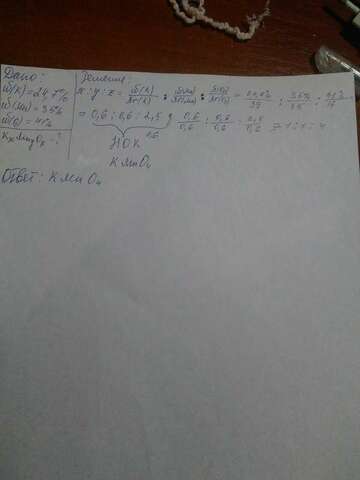 Дано:
ω(K)=24,7%
ω(Mn)=35%
ω(O)=41%
KxMnyOz=?
Решение:
x:y:z= ω(K)/Ar(K) : ω(Mn)/Ar(Mn) : ω(O)/Ar(O) = 24,7%/39 : 35%/55 : 41%/16
= 0,6 : 0,6 : 2,5 0,6/0,6 : 0,6/0,6 : 2,5/0,6 = 1:1:4
НОК 0,6
KMnO₄
Ответ: KMnO₄